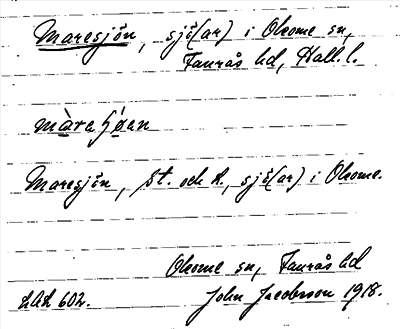 Maresjön, sjö(ar) i Okome sn,
Faurås hd, Hall. l.
Maresjön, St. och L., sjö(ar) i Okome.
Okome sn, Faurås hd
LAL 602. John Jacobsson 1918.